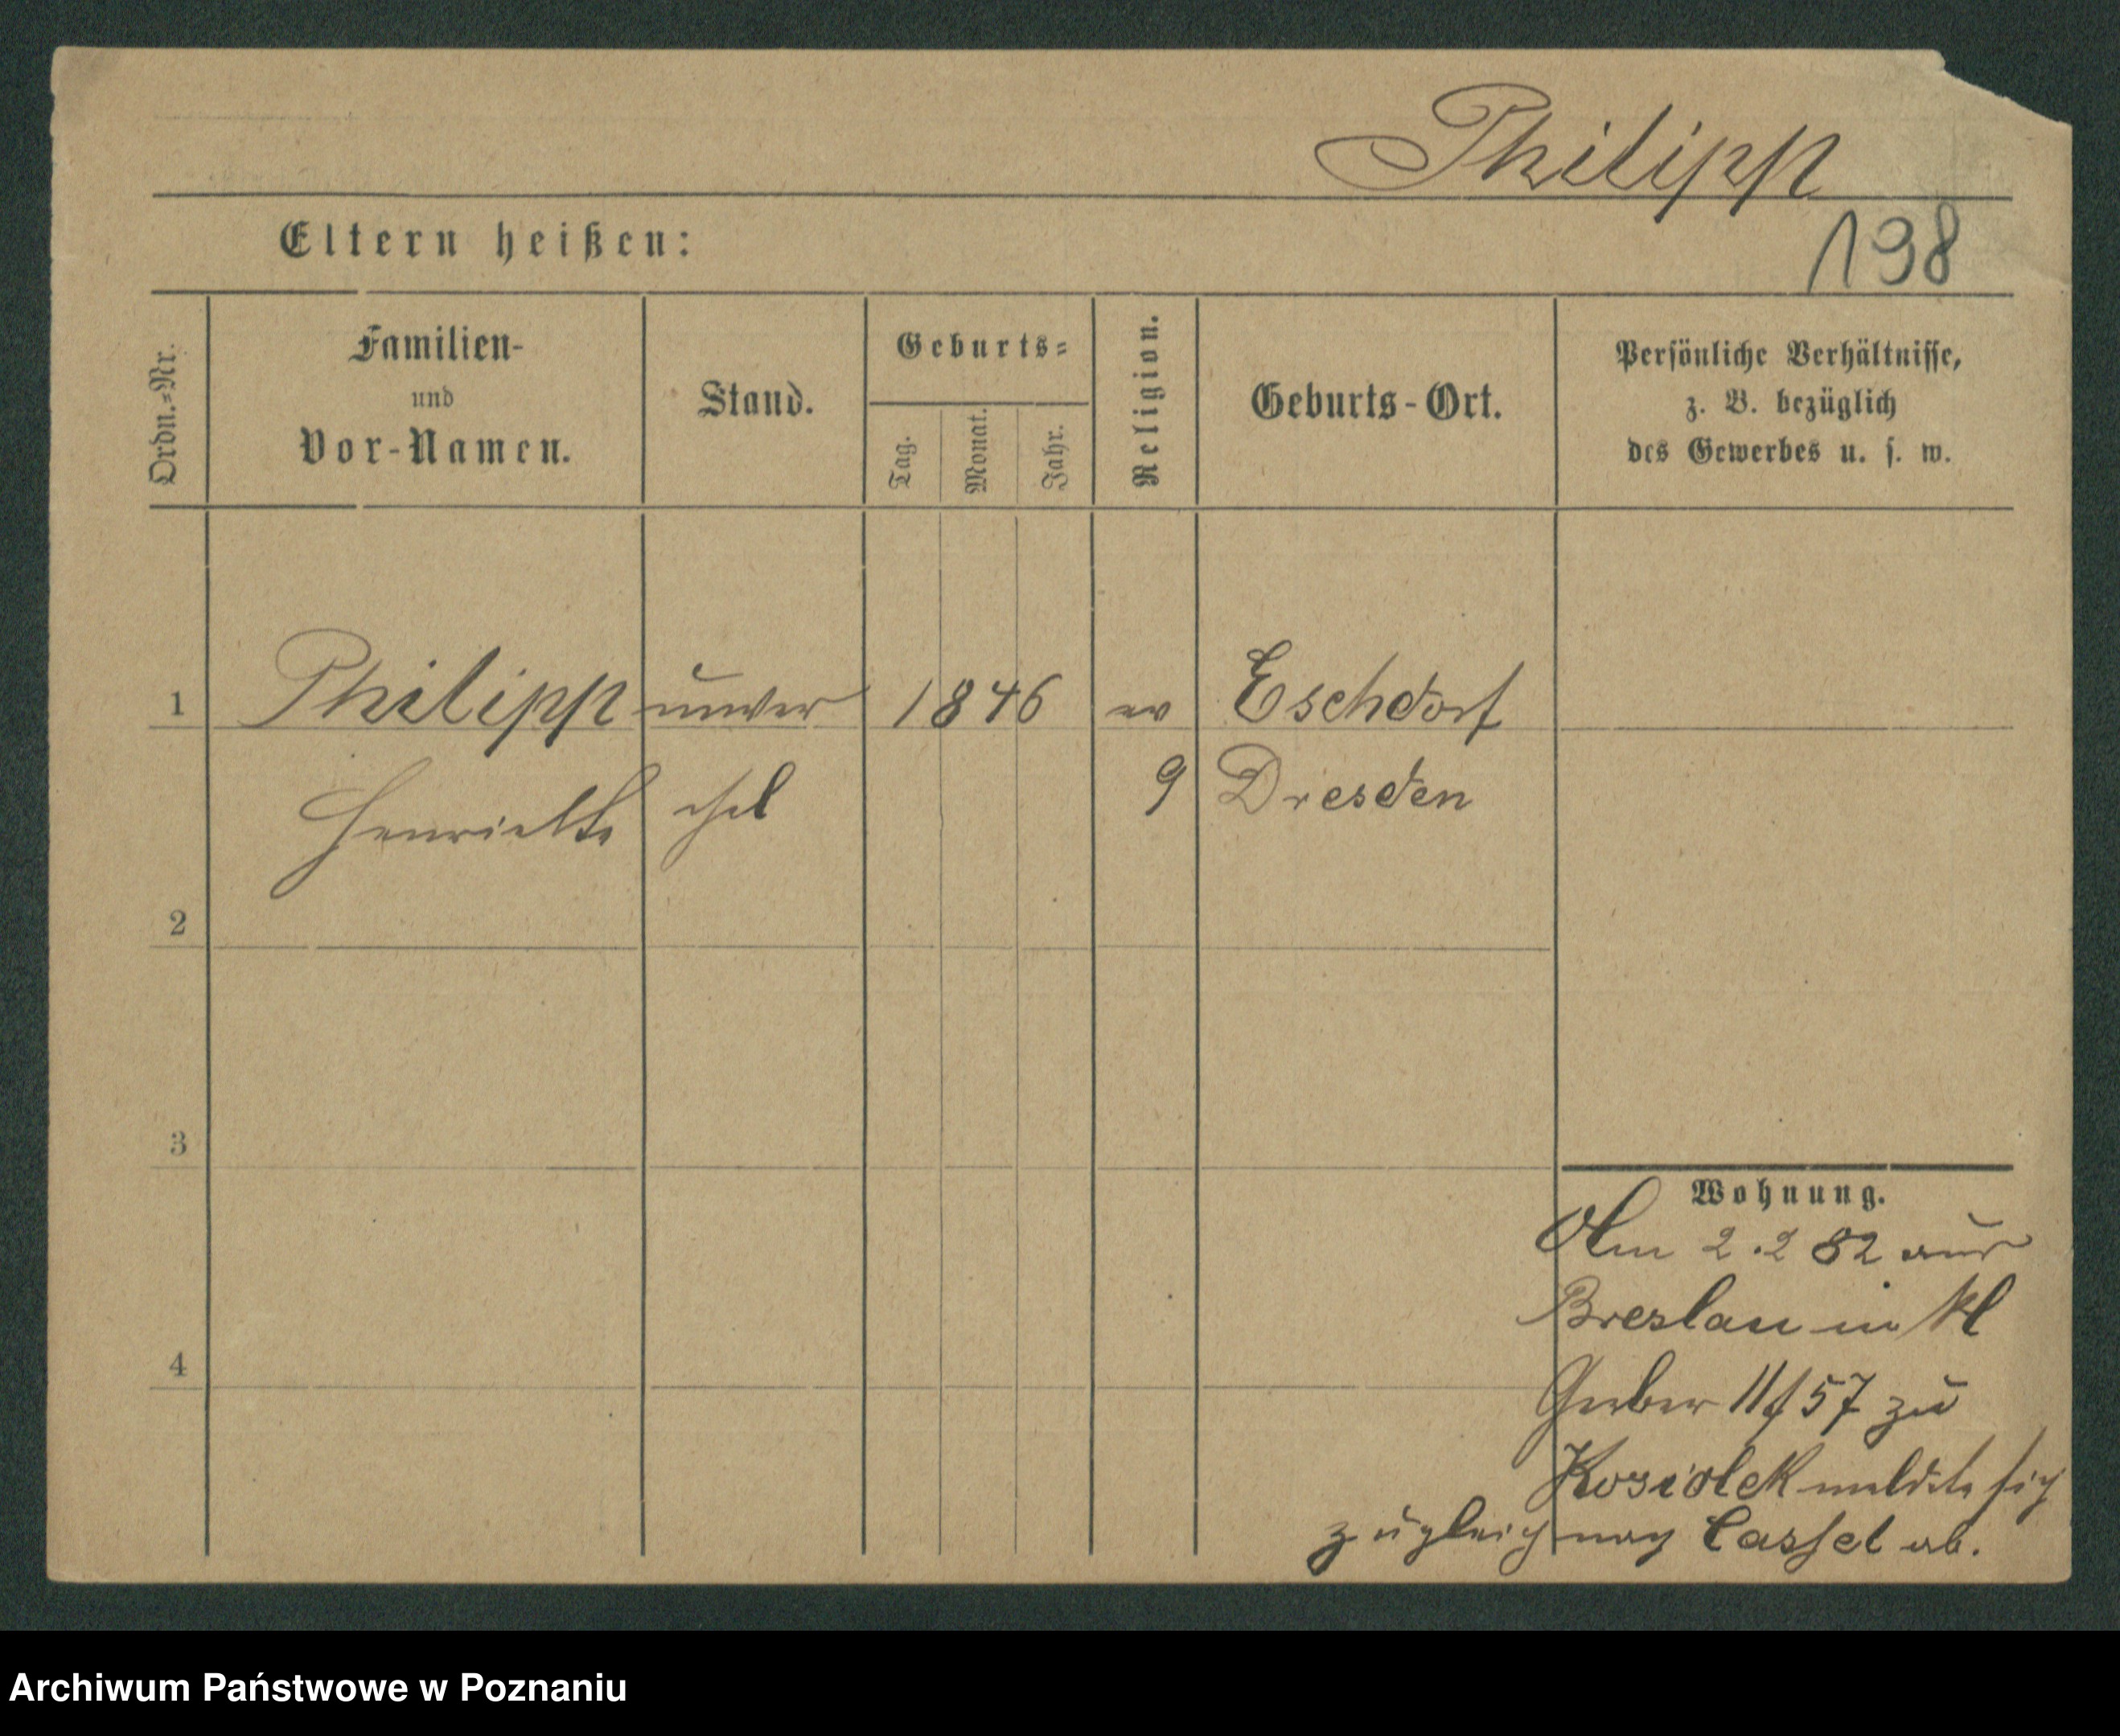 Philipp
198
Eltern heißen:
Ordn.-Nr.
Familien-
und
Vor-Namen.
Stand.
Geburts-
Tag.
Monat.
Jahr.
Religion.
Geburts-Ort.
Persönliche Verhältnisse,
z. B. bezüglich
des Gewerbes u. s. w.
1 Philipp unver 1846 ev Eschdorf
Henriette ehel 9 Dresden
2
3
4
Wohnung.
Am 2.2 82 aus
Breslau in Kl
Gerber 11/57 zu
Kosiolek meldete sich
zugleich nach Cassel ab.
Archiwum Państwowe w Poznaniu